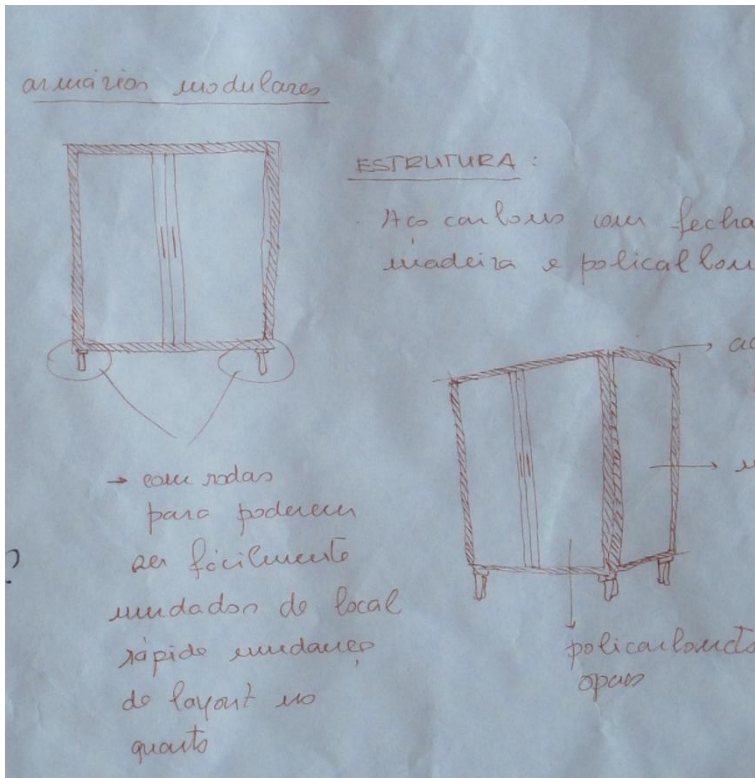 armários modulares
ESTRUTURA :
Aço carbono com fecha
madeira e policarbon
→ com rodas
para poderem
ser fácilmente
mudados de local
rápida mudança
de layout no
quarto
policarbonato
opaco